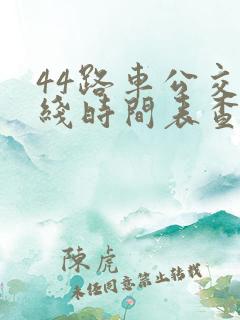 44路車公交
綫時間表查
陳虎
未經同意禁止轉載